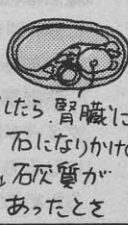 したら、腎臓に
石になりかけの
石灰質が
あったとさ